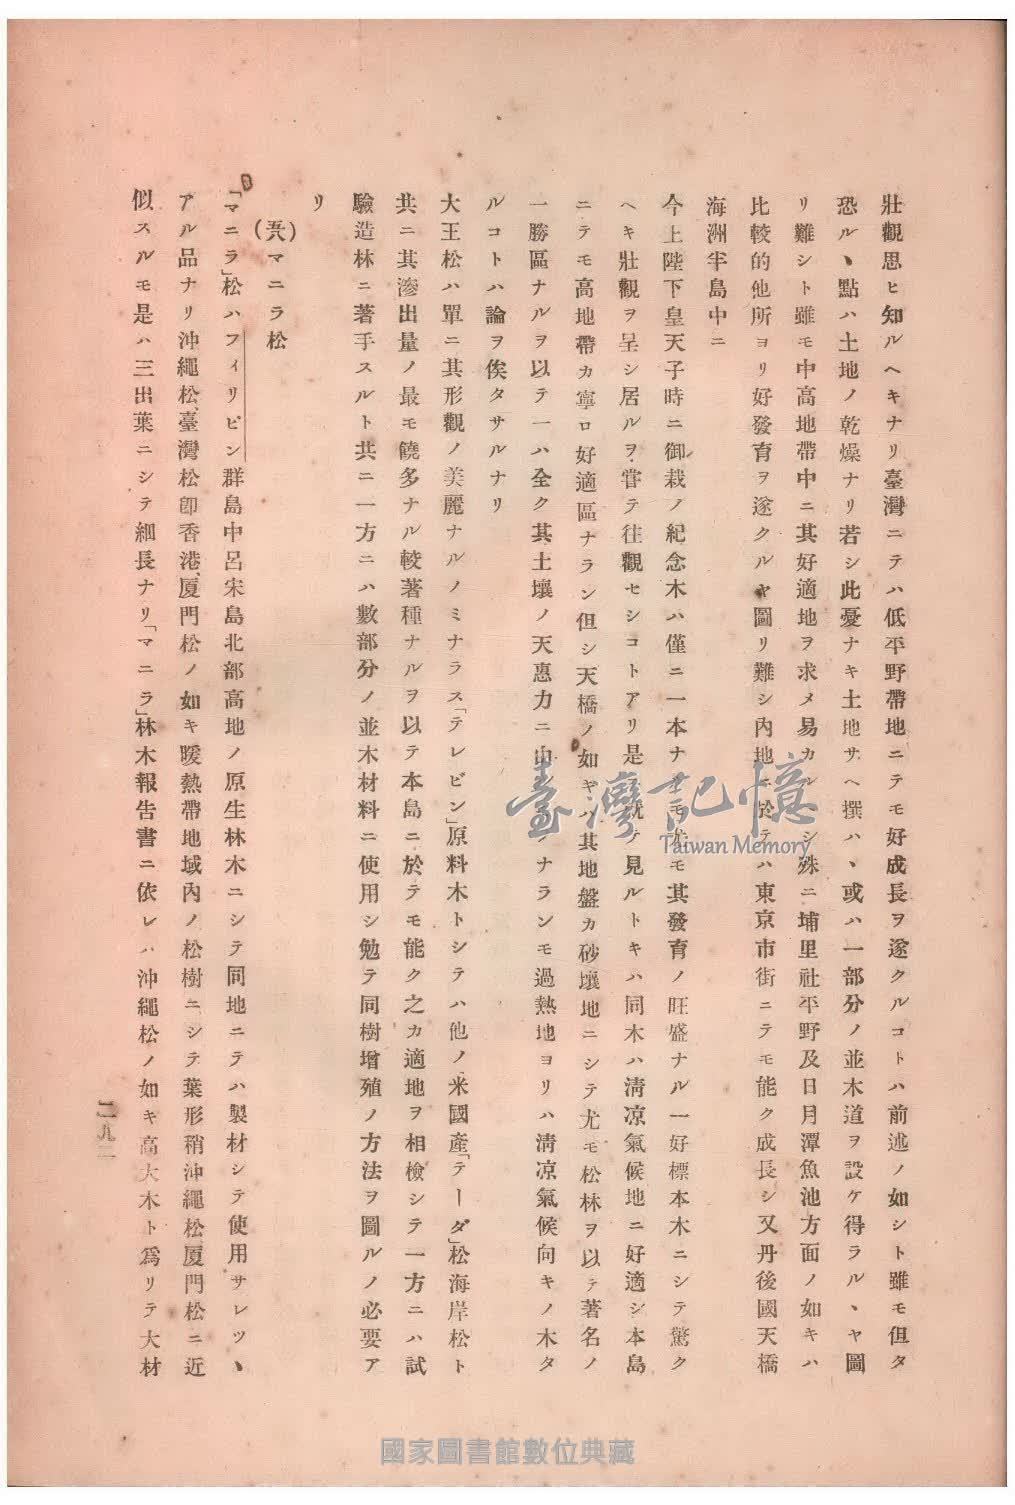 壯觀思ヒ知ルヘキナリ臺灣ニテハ低平野帶地ニテモ好成長ヲ遂クルコトハ前述ノ如シト雖モ但タ
恐ルヽ點ハ土地ノ乾燥ナリ若シ此憂ナキ土地サヘ撰ハヽ或ハ一部分ノ並木道ヲ設ケ得ラルヽヤ圖
リ難シト雖モ中高地帶中ニ其好適地ヲ求メ易カルシ殊ニ埔里社平野及日月潭魚池方面ノ如キハ
比較的他所ヨリ好發育ヲ遂クルヤ圖リ難シ內地ニ於テハ東京市街ニテモ能ク成長シ又丹後國天橋
海洲半島中ニ
今上陛下皇天子時ニ御栽ノ紀念木ハ僅ニ一本ナモ尤モ其發育ノ旺盛ナル一好標本木ニシテ驚ク
ヘキ壯觀ヲ呈シ居ルヲ甞テ往觀セシコトアリ是テ見ルトキハ同木ハ淸凉氣候地ニ好適シ本島
ニテモ高地帶カ寧ロ好適區ナラン但シ天橋ノ如キハ其地盤カ砂壤地ニシテ尤モ松林ヲ以テ著名ノ
一勝區ナルヲ以テ一ハ全ク其土壤ノ天惠力ニ由ナランモ過熱地ヨリハ淸凉氣候向キノ木タ
ルコトハ論ヲ俟タサルナリ
大王松ハ單ニ其形觀ノ美麗ナルノミナラス「テレビン」原料木トシテハ他ノ米國產「テーダ」松海岸松ト
共ニ其滲出量ノ最モ饒多ナル較著種ナルヲ以テ本島ニ於テモ能ク之カ適地ヲ相檢シテ一方ニハ試
驗造林ニ著手スルト共ニ一方ニハ數部分ノ並木材料ニ使用シ勉テ同樹增殖ノ方法ヲ圖ルノ必要ア
リ
マニラ松
「マニラ」松ハフィリピン群島中呂宋島北部高地ノ原生林木ニシテ同地ニテハ製材シテ使用サレツヽ
アル品ナリ沖繩松、臺灣松卽香港、厦門松ノ如キ暖熱帶地域內ノ松樹ニシテ葉形稍沖繩松厦門松ニ近
似スルモ是ハ三出葉ニシテ細長ナリ「マニラ」林木報告書ニ依レハ沖繩松ノ如キ高大木ト爲リテ大材
二九一
臺灣記憶
Taiwan Memory
國家圖書館數位典藏